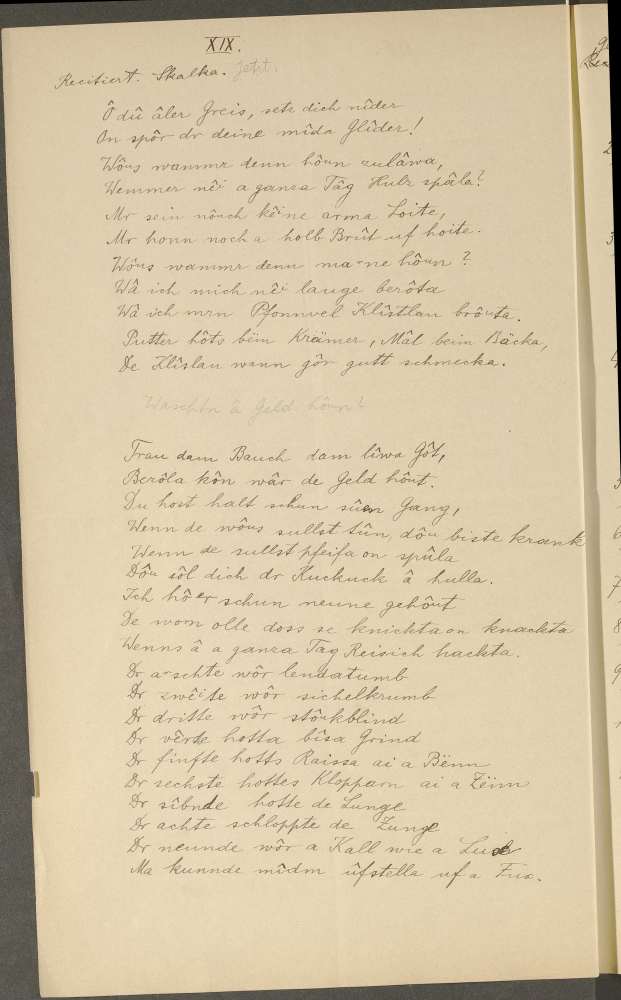 XIX.
Recitiert. Skalka. Jetzt.
Ô dû âler Greis, setz dich nîder
On spôr dr deine mîda Glîder!
Wôus wammr denn hôun zulâwa,
Wemmer nêi a ganza Tâg Hulz spâla?
Mr sein nôuch kêine arma Loite,
Mr honn noch a holb Brût uf hoite.
Wôus wammr denn ma-ne hôun?
Wâ ich mich nêi lange berôta
Wâ ich mrn Pfonnvel Klîstlan brôuta.
Putter hôts bëin Krämer, Mâl beim Bäcka,
De Klîslan wann gôr gutt schmecka.
Waschtn â Geld hôun?
Trau dam Bauch dam lîwa Gôt,
Berôla kôn wâr de Geld hôut.
Du host halt schun süen Gang,
Wenn de wôus sullst tûn, dôu biste krank
Wenn de sullst pfeifa on spûla
Dôu sôl dich dr Kuckuck â hulla.
Ich hôer schun neune gehôut
De worn olle doss se knickta on knackta
Wenns â a ganza Tag Reisich hackta.
Dr a-schte wôr lendatumb
Dr zwêite wôr sichelkrumb
Dr dritte wôr stôukblind
Dr vêrte hotta bîsa Grind
Dr finfte hotts Raissa ai a Bënn
Dr sechste hottes Kloppam ai a Zënn
Dr sîbnde hotte de Lunge
Dr achte schloppte de Zunge
Dr neunde wôr a Kall wie a
Ma kunnde mîdm ûfstella uf a Fux.